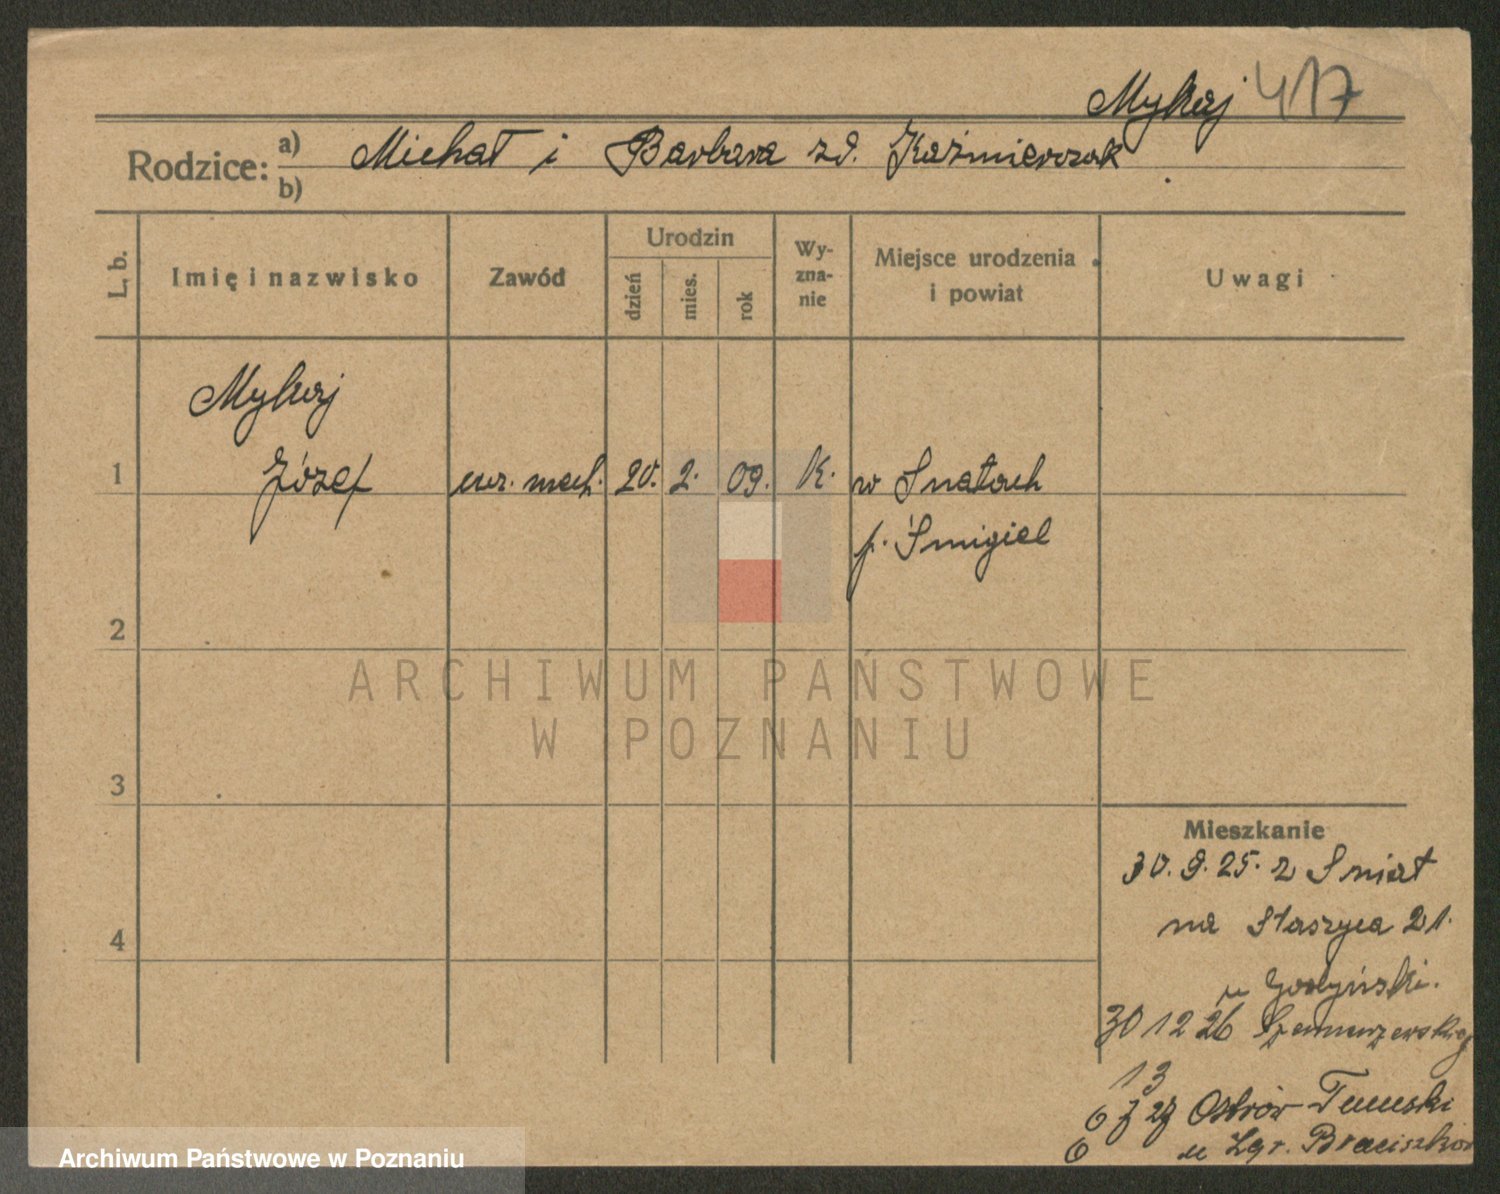 Mykaj 417
Rodzice: a) Michał i Barbara zd. Kaźmierczak
b)
L. b.
Imię i nazwisko
Zawód
Urodzin
dzień
mies.
rok
Wy-
zna-
nie
Miejsce urodzenia
i powiat
Uwagi
Mykaj
1 Józef ucz. mech. 20. 2. 09. K. w Śnatach
p. Śmigiel
2
ARCHIWUM PAŃSTWOWE
W POZNANIU
3
Mieszkanie
30. 9. 25. z Śniat
na Staszyca 21.
4
u
30 12 26
13
6 7 27 Ostrów Tumski
6 u Zgr.
Archiwum Państwowe w Poznaniu